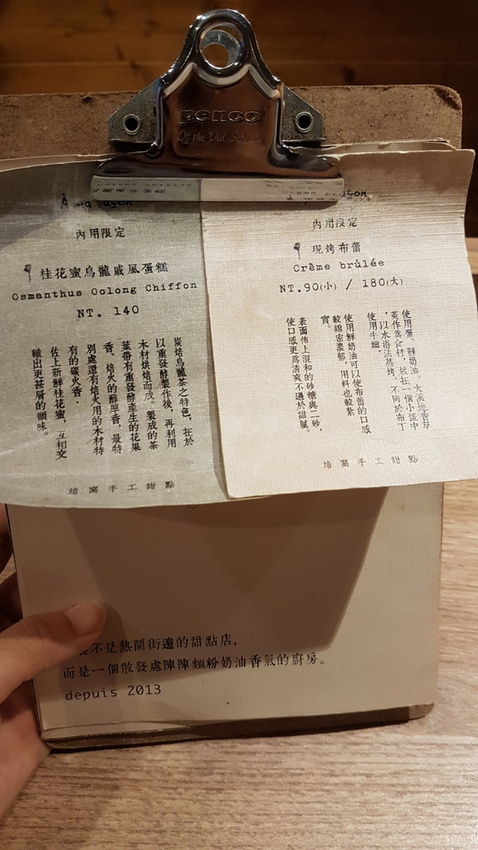 penco
內用限定
桂花蜜烏龍戚風蛋糕
Osmanthus Oolong Chiffon
NT. 140
炭焙烏龍茶之特色，在於
以重發酵製作後，再利用
木材烘焙而成。製成的茶
葉帶有重發酵產生的花果
香、焙火的醇厚香，最特
別處還有焙火用的木材特
有的碳火香。
佐上新鮮桂花蜜，互相交
織出更甚層的韻味。
焙窩手工甜點
內用限定
現烤布蕾
Crème brûlée
NT.90(小) / 180(大)
使用蛋、鮮奶油、大溪地香草
莢作為食材，放在一個小盅中
，以水浴法蒸烤，不同於布丁
使用牛奶
使用鮮奶油可以使布蕾的口感
較綿密濃郁，用料也較紮
實。
表面佈上混和的砂糖與二砂，
使口感更為清爽不過於甜膩。
焙窩手工甜點
不是熱鬧街邊的甜點店，
而是一個散發處陣陣麵粉奶油香氣的廚房。
depuis 2013